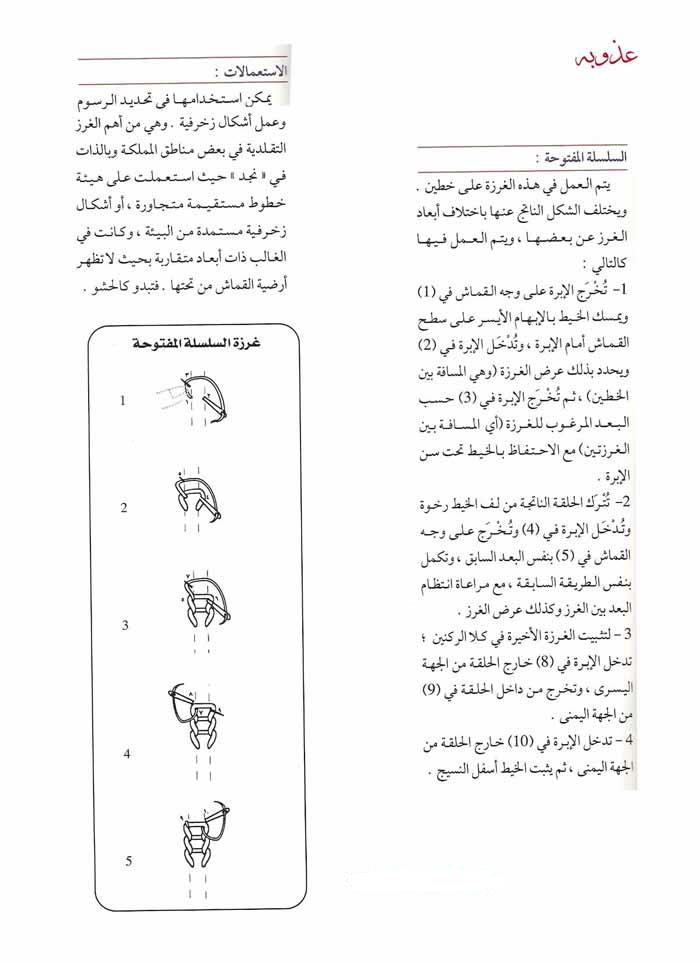 عذوبه
السلسلة المفتوحة :
يتم العمل في هذه الغرزة على خطين .
ويختلف الشكل الناتج عنها باختلاف أبعاد
الغرز عن بعضها ، ويتم العمل فيها
كالتالي :
1- تُخْرَج الإبرة على وجه القماش في (1)
ويمسك الخيط بالإبهام الأيسر على سطح
القماش أمام الإبرة ، وتُدْخَل الإبرة في (2)
ويحدد بذلك عرض الغرزة (وهي المسافة بين
الخطين) ، ثم تُخْرَج الإبرة في (3) حسب
البعد المرغوب للغرزة (أي المسافة بين
الغرزتين) مع الاحتفاظ بالخيط تحت سن
الإبرة .
2- تُتْرَك الحلقة الناتجة من لف الخيط رخوة
وتُدْخَل الإبرة في (4) وتُخْرَج على وجه
القماش في (5) بنفس البعد السابق ، وتكمل
بنفس الطريقة السابقة ، مع مراعاة انتظام
البعد بين الغرز وكذلك عرض الغرز .
3 - لتثبيت الغرزة الأخيرة في كلا الركنين ؛
تدخل الإبرة في (8) خارج الحلقة من الجهة
اليسرى ، وتخرج من داخل الحلقة في (9)
من الجهة اليمنى .
4 - تدخل الإبرة في (10) خارج الحلقة من
الجهة اليمنى ، ثم يثبت الخيط أسفل النسيج .
الاستعمالات :
يمكن استخدامها فى تحديد الرسوم
وعمل أشكال زخرفية . وهي من أهم الغرز
التقلدية في بعض مناطق المملكة وبالذات
في « نجد » حيث استعملت على هيئة
خطوط مستقيمة متجاورة ، أو أشكال
زخرفية مستمدة من البيئة ، وكانت في
الغالب ذات أبعاد متقاربة بحيث لا تظهر
أرضية القماش من تحتها . فتبدو كالحشو .
غرزة السلسلة المفتوحة
1
2
3
4
5